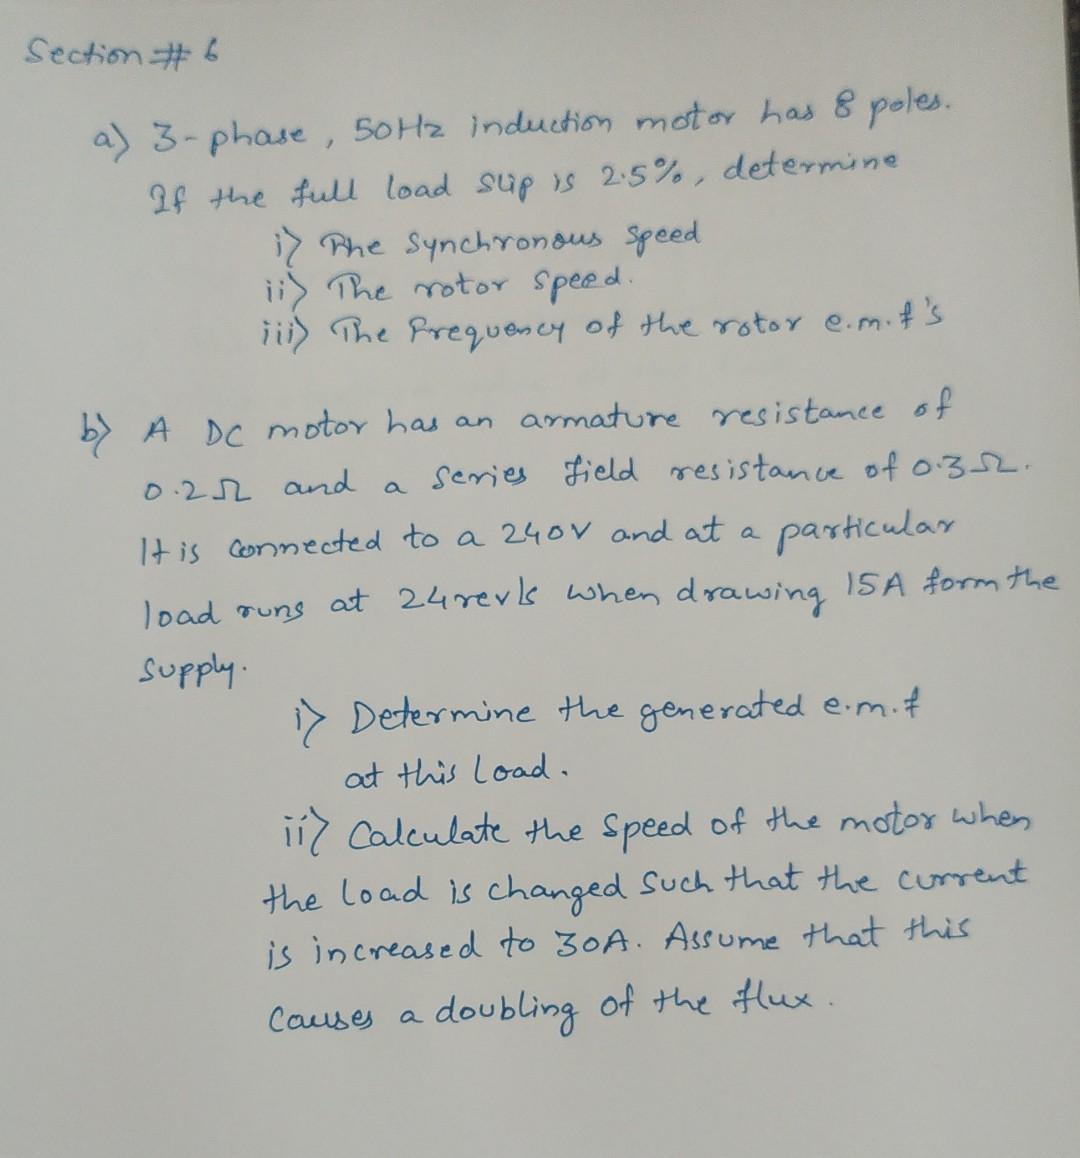 Section # 6
a) 3-phase, 50Hz induction motor has 8 poles.
If the full load slip is 2.5%, determine
i) The Synchronous Speed
ii) The rotor speed.
iii) The Frequency of the rotor e.m.f's
b) A DC motor has an armature resistance of
0.2Ω and a series field resistance of 0.3Ω.
It is connected to a 240V and at a particular
load runs at 24rev/s when drawing 15A form the
supply.
i) Determine the generated e.m.f
at this load.
ii) Calculate the speed of the motor when
the load is changed such that the current
is increased to 30A. Assume that this
causes a doubling of the flux.